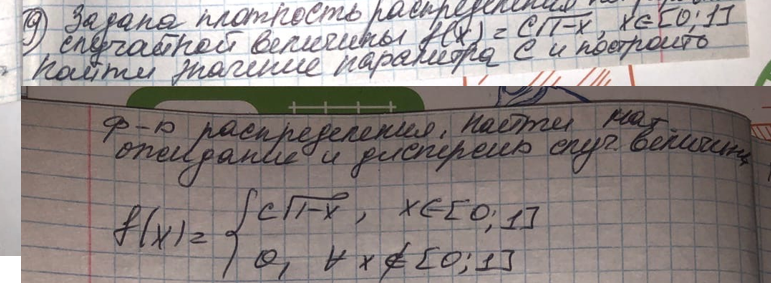 9) Задана плотность распределения
случайной величины f(x) = C√1-x, x∈[0;1]
Найти значение параметра C и построить
ф-ю распределения, найти мат
ожидание и дисперсию случ. величины
f(x) = { C√1-x, x∈[0;1]
0, ∀ x∉[0;1]